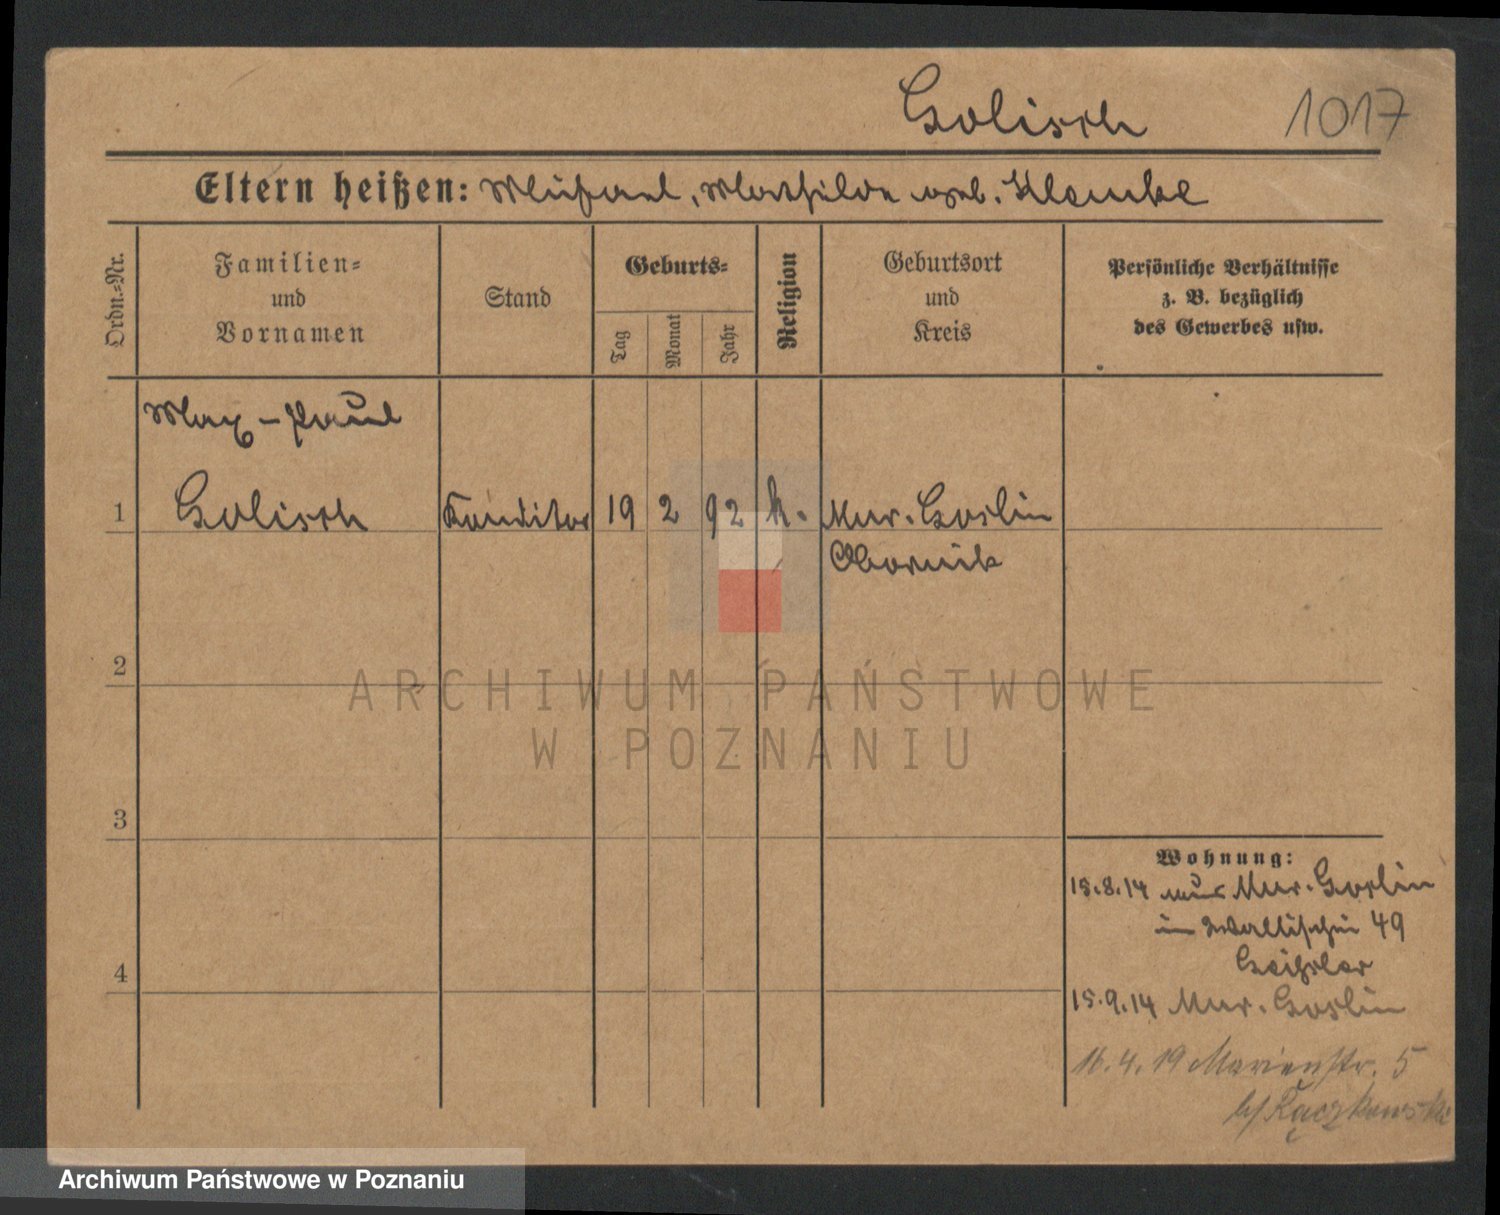 Golisch 1017
Eltern heißen: Michael, Mathilde geb. Klemke
Ordn.-Nr.
Familien-
und
Vornamen
Stand
Geburts-
Tag
Monat
Jahr
Religion
Geburtsort
und
Kreis
Persönliche Verhältnisse
z. B. bezüglich
des Gewerbes usw.
Max-Paul
1 Golisch Konditor 19 2 92 k. Mur. Goslin
Obornik
2
ARCHIWUM PAŃSTWOWE
W POZNANIU
3
Wohnung:
15.8.14 aus Mur. Goslin
in Wallischei 49
4
15.9.14 Mur. Goslin
16.4.19 Marienstr. 5
b/ Łączkowski
Archiwum Państwowe w Poznaniu